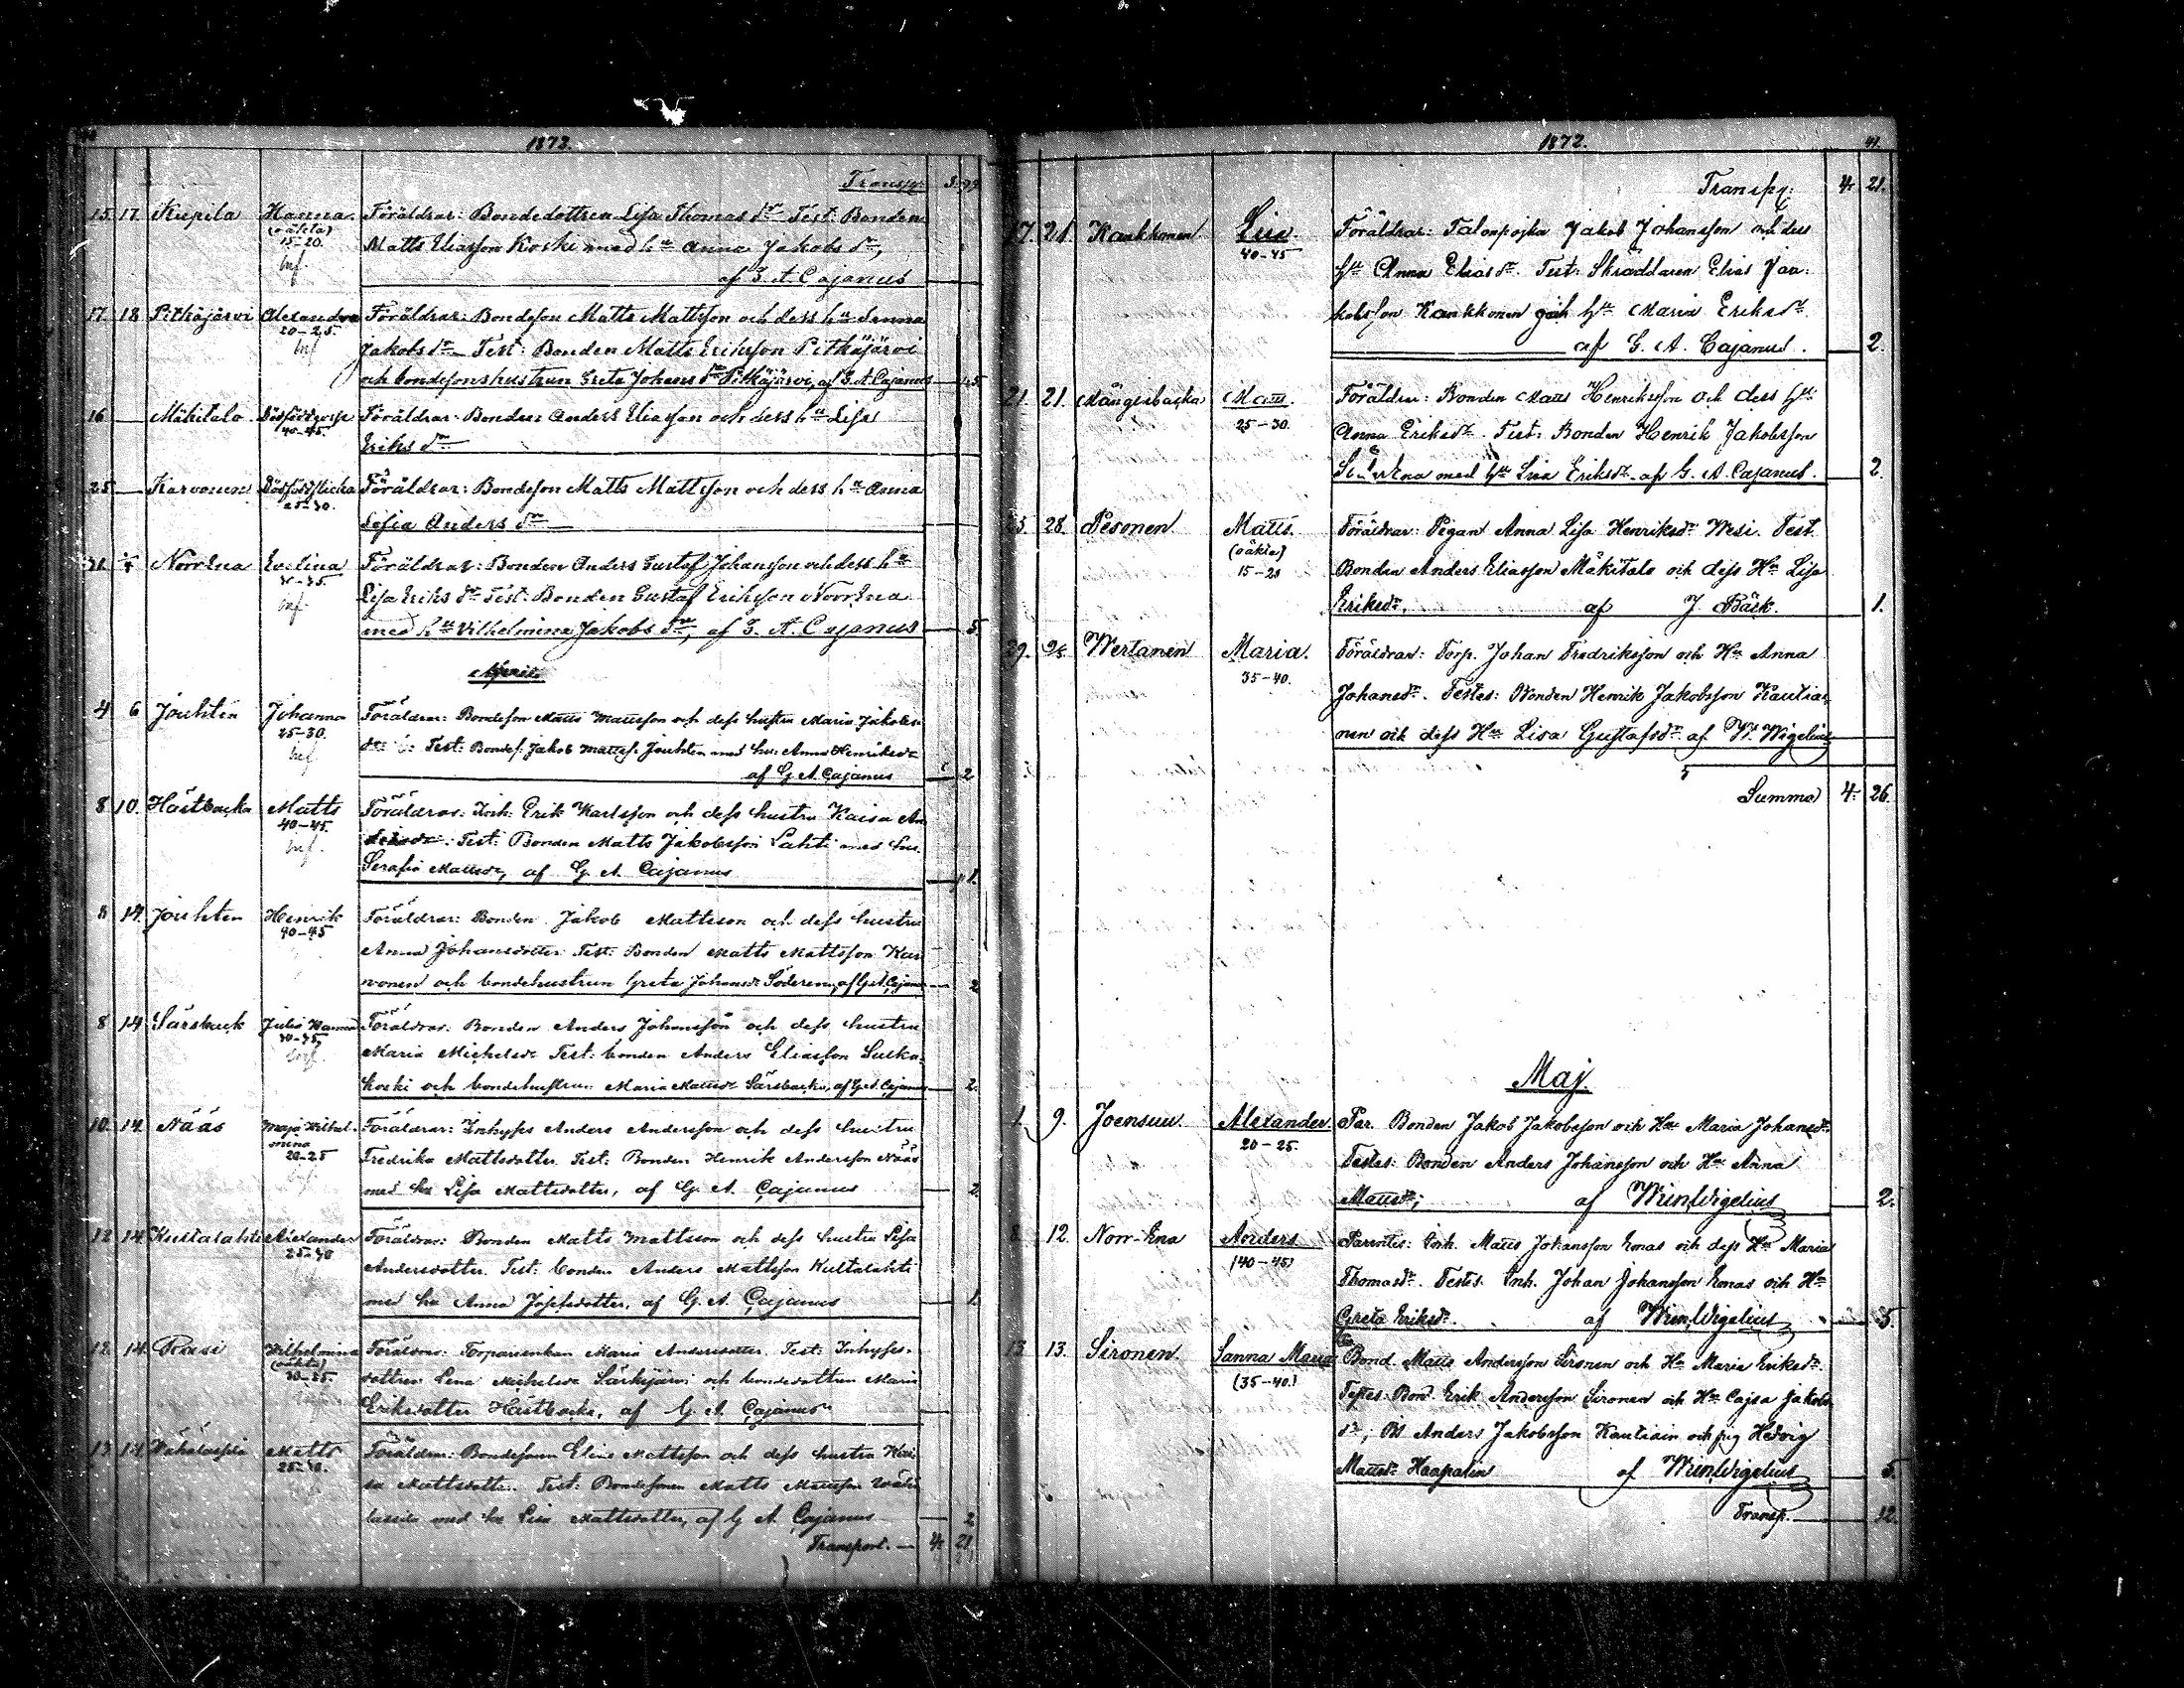 1873.
Transp: 3. 99
15. 17. Kiepila Hanna Föräldrar: Bondedottren Lisa Thomas dr Test: Bonden
(oäkta)
15-20. Matts Eliasson Koski med hu Anna Jakobs dr,
af G. A. Cajanus
17. 18. Pitkäjärvi Alexandra Föräldrar: Bondeson Matts Mattsson och dess hu Sanna
20-25. Jakobs dr Test: Bonden Matts Eriksson Pitkäjärvi
och bondesonshustrun Greta Johans dr Pitkäjärvi, af G. A. Cajanus
16 — Mäkitalo Dödfödt gosse Föräldrar: Bonden Anders Eliasson och dess hu Lisa
40-45. Eriks dr
25 — Karvonen Dödfödd flicka Föräldrar: Bondeson Matts Mattsson och dess hu Anna
25-30. Sofia Anders dr
Norr Ena Evelina Föräldrar: Bonden Anders Gustaf Johansson och dess hu
Lisa Eriks dr Test: Bonden Gustaf Eriksson Norr Ena
med hu Vilhelmina Jakobs dr, af G. A. Cajanus — 5.
April
4 6 Jouhten Johanna Föräldrar: Bondeson Matts Mattsson och dess hustru Maria Jakobs
25-30. Test: Bondes: Jakob Mattss. Jouhten med hu: Anna Henriksdr
af G. A. Cajanus 2
8 10. Hästbacka Matts Föräldrar: Inh: Erik Karlsson och dess hustru Kaisa An
40-45. Test: Bonden Matts Jakobsson Lahti med hu.
Serafia Mattsdr, af G. A. Cajanus 1.
8 14. Jouhten Henrik Föräldrar: Bonden Jakob Mattsson och dess hustru
40-45 Anna Johansdotter Test: Bonden Matts Mattsson Kar
vonen och bondehustrun Greta Johansdr Söderena, af G. A. Cajanus — 2
8 14 Särsback Julia Hanna Föräldrar: Bonden Anders Johansson och dess hustru
Maria Michelsdr Test: bonden Anders Eliasson Sulka
koski och bondehustrun Maria Mattsdr Särsbacka, af G. A. Cajanus — 2.
10. 14. Nääs Maja Wilhel- Föräldrar: Inhyses Anders Andersson och dess hustru
mina
20-25 Fredrika Mattsdotter. Test: Bonden Henrik Andersson Nääs
med hu Lisa Mattsdotter, af G. A. Cajanus — 2.
12 14 Kultalahti Alexander Föräldrar: Bonden Matts Mattsson och dess hustru Lisa
Andersdotter. Test: bonden Anders Mattsson Kultalahti
med hu Anna Josefsdotter, af G. A. Cajanus — 1.
12. 14. Wilhelmina Föräldrar: Torparenkan Maria Andersdotter. Test: Inhyses-
(oäkta)
dottren Lena Michelsdr Särkijärvi och bondedottren Maria
Eriksdotter Hästbacka, af G. A. Cajanus
13. 14. Matts Föräldrar: Bondesonen Elias Mattsson och dess hustru Kai
sa Mattsdotter. Test: Bondesonen Matts Mattsson
med hu Lisa Mattsdotter, af G. A. Cajanus — 2
Transport. — 4. 21
1872. 41.
Transp: 4. 21.
17. 21. Kankkonen. Lisa. Föräldrar: Talonpojka Jakob Johansson och dess
40-45 hu Anna Elias dr. Test: Skräddaren Elias Jaa-
kobsson Kankkonen och hu Maria Eriksdr.
af G. A. Cajanus. — 2.
21. 21. Mängesbacka Matts. Föräldrar: Bonden Matts Henriksson och dess hu
25-30. Anna Eriksdr. Test: Bonden Henrik Jakobsson
med hu Lisa Eriksdr. af G. A. Cajanus. — 2.
25. 28. Pesonen Matts. Föräldrar: Pigan Anna Lisa Henriksdr Wesi. Test
(oäkta)
15-20 Bonden Anders Eliasson Mäkitalo och dess Hu Lisa
Eriksdr. af J. Bäck. 1.
29. Wertanen Maria. Föräldrar: Torp. Johan Fredriksson och Hu Anna
35-40. Johansdr. Testes: Bonden Henrik Jakobsson Kautia-
nen och dess Hu Lisa Gustafsdr af W. Wigelius
5
Summa 4. 26.
Maj.
1. 9. Joensuu. Alexander. Par. Bonden Jakob Jakobsson och Hu Maria Johansdr.
20-25. Testes: Bonden Anders Johansson och Hu Anna
Mattsdr; af Wm Wigelius — 2.
8. 12. Norr-Ena Anders Parentes: Inh. Matts Johansson Emas och dess Hu Maria
(40-45) Thomasdr. Testes. Inh. Johan Johansson Emas och Hu
Greta Eriksdr. af Wm Wigelius 5.
13 13. Sironen. Sanna Maria Bond. Matts Andersson Sironen och Hu Maria Eriksdr.
(35-40.) Testes: Bond Erik Andersson Sironen och Hu Cajsa Jakobs
dr; Anders Jakobsson Kautiain och pig Hedvig
Mattsdr Haapalin af Wm Wigelius — 5.
Transp. — 12.